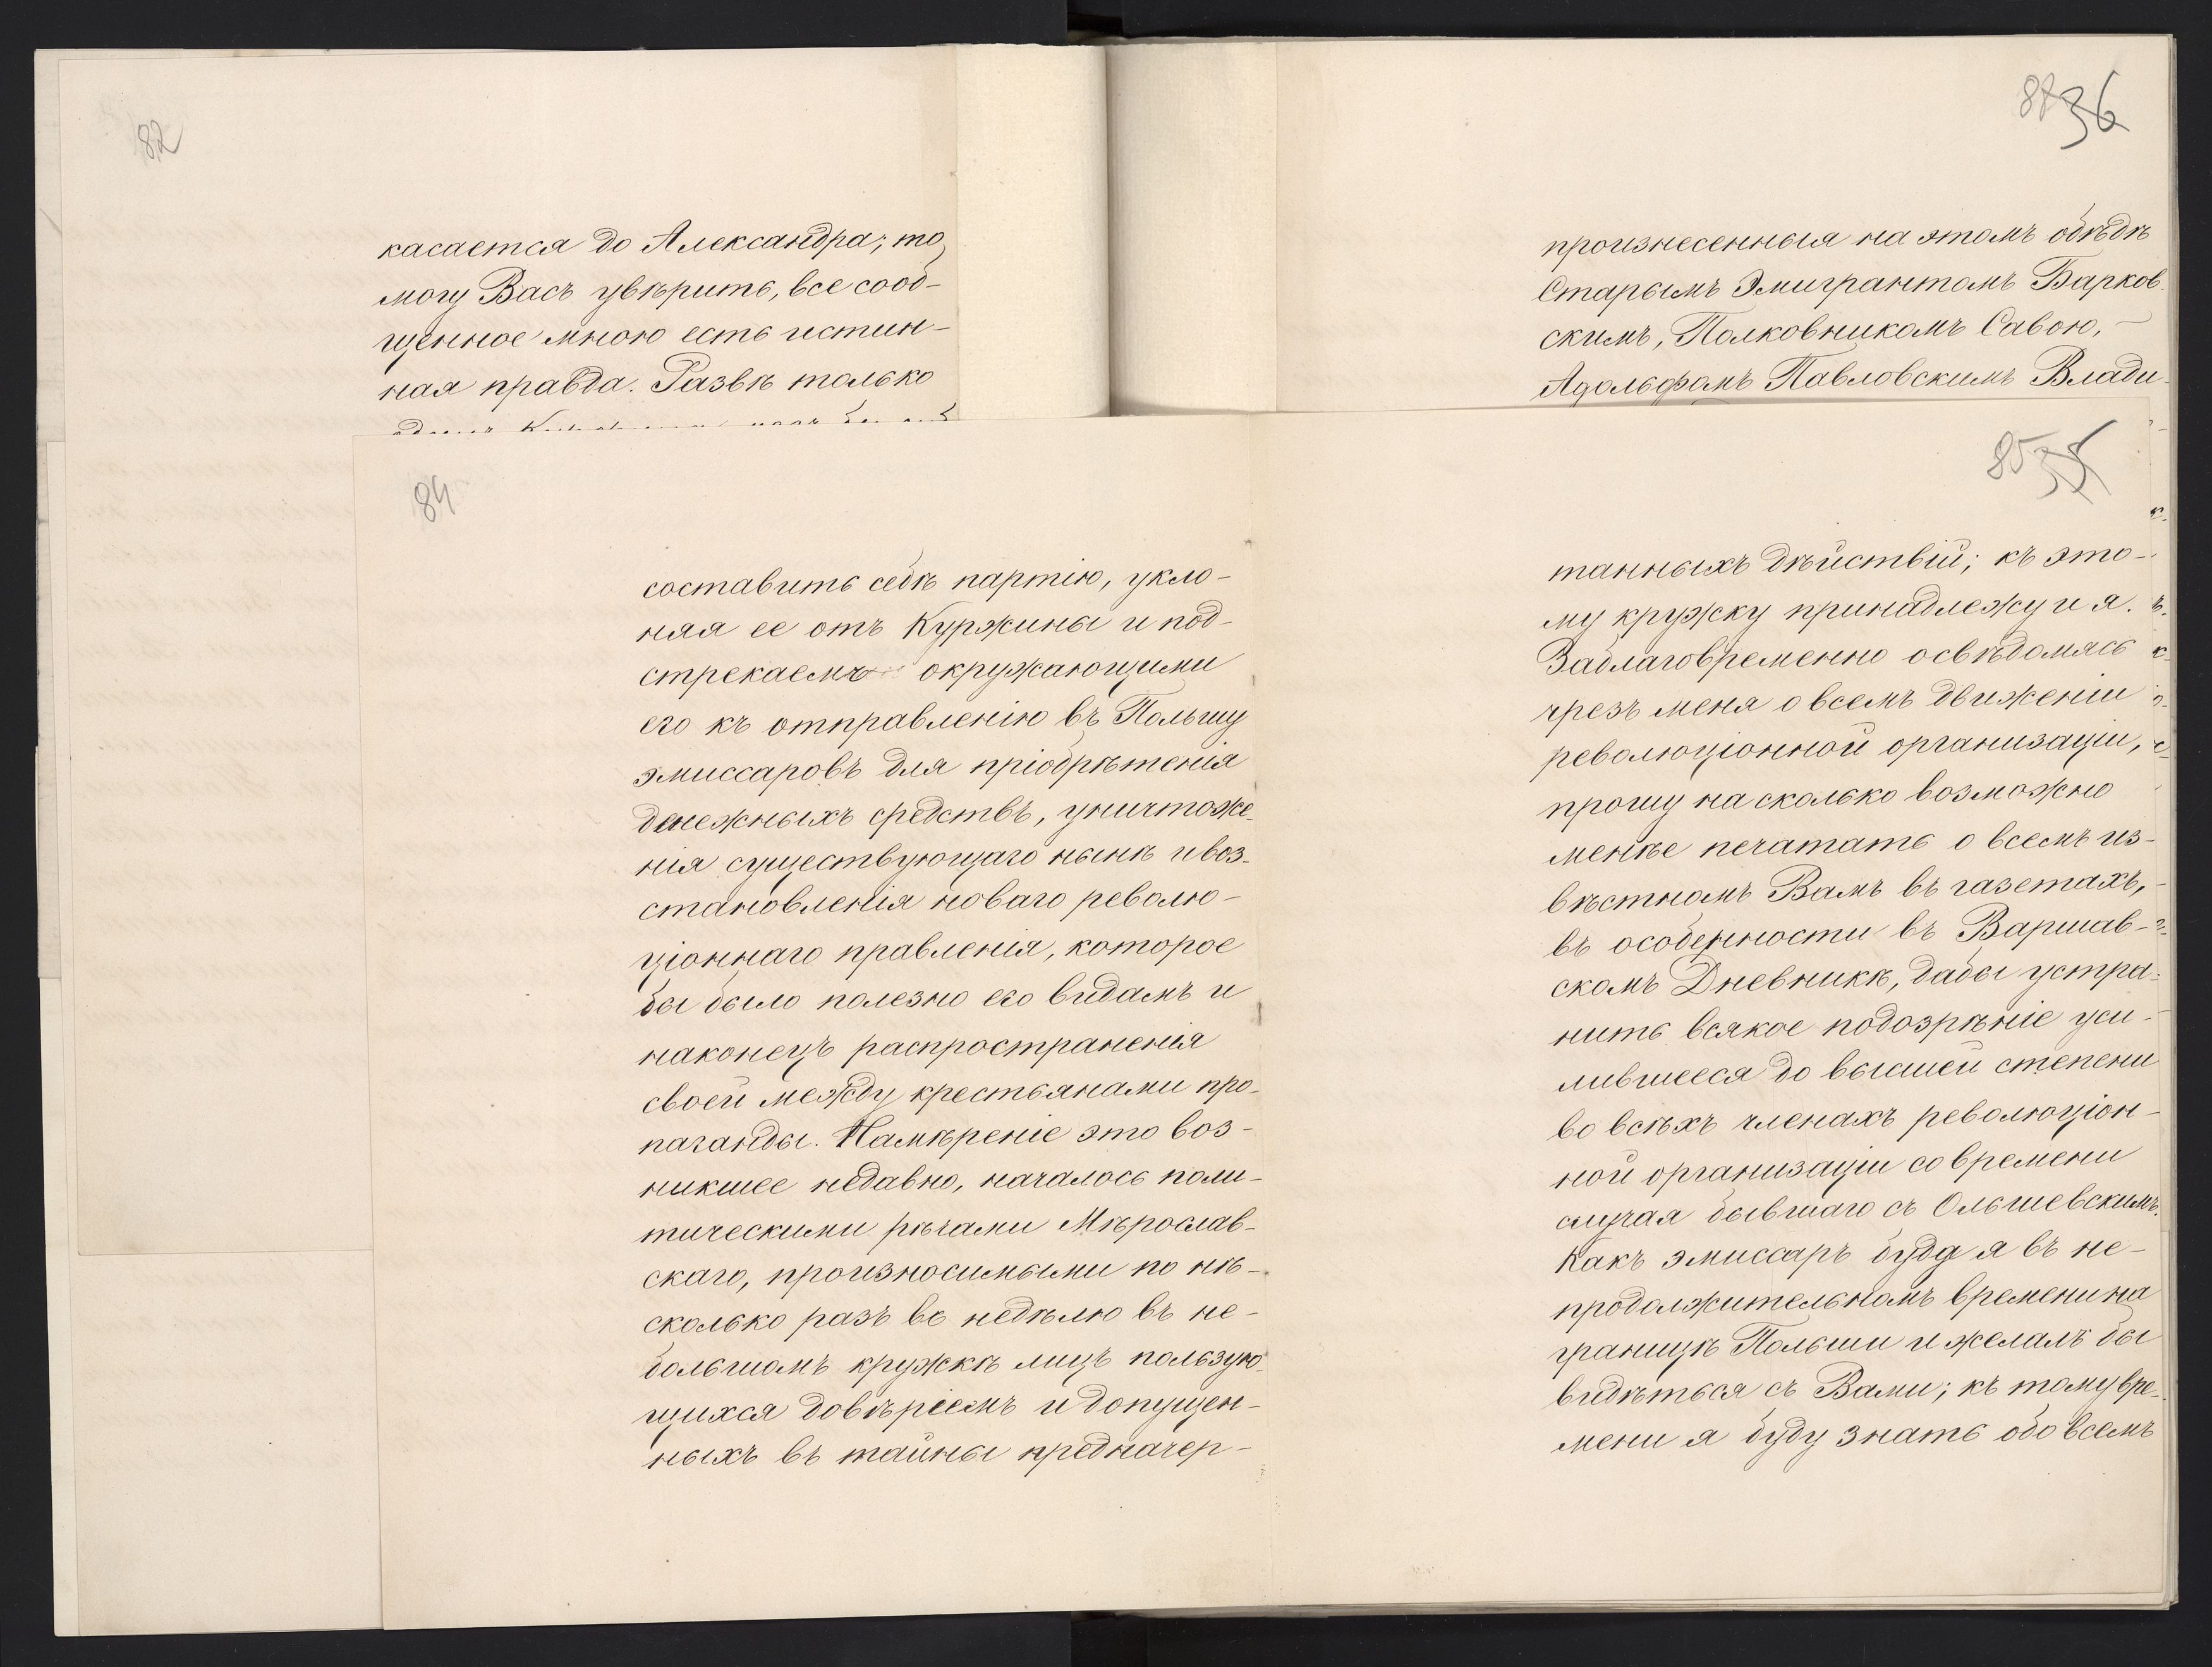 82
касается до Александра; то
могу Васъ увѣрить, все сооб-
щенное мною есть истин-
ная правда. Развѣ только
87 36
произнесенныя на этомъ обѣдѣ
Старымъ Эмигрантомъ Барков-
скимъ, Полковникомъ Савою,
Адольфомъ Павловскимъ Влади-
84
составить себѣ партію, укло-
няя ее отъ Куржины и под-
стрекаемъ окружающими
его къ отправленію въ Польшу
эмиссаровъ для пріобрѣтенія
денежныхъ средствъ, уничтоже-
нія существующаго нынѣ и воз-
становленія новаго револю-
ціоннаго правленія, которое
бы было полезно его видамъ и
наконецъ распространенія
своей между крестьянами про-
паганды. Намѣреніе это воз-
никшее недавно, началось поли-
тическими рѣчами Мѣрослав-
скаго, произносимыми по нѣ-
сколько разъ въ недѣлю въ не-
большомъ кружкѣ лицъ пользую-
щихся довѣріемъ и допущен-
ныхъ въ тайны предначер-
85 35
танныхъ дѣйствій; къ это-
му кружку принадлежу и я.
Заблаговременно освѣдомясь
чрезъ меня о всемъ движеніи
революціонной организаціи,
прошу на сколько возможно
менѣе печатать о всемъ из-
вѣстномъ Вамъ въ газетахъ,
въ особенности въ Варшав-
скомъ Дневникѣ, дабы устра-
нить всякое подозрѣніе уси-
лившееся до высшей степени
во всѣхъ членахъ революціон-
ной организаціи со времени
случая бывшаго съ Ольшевскимъ.
Какъ эмиссаръ буду я въ не-
продолжительномъ времени на
границѣ Польши и желалъ бы
видѣться съ Вами; къ тому вре-
мени я буду знать обо всемъ